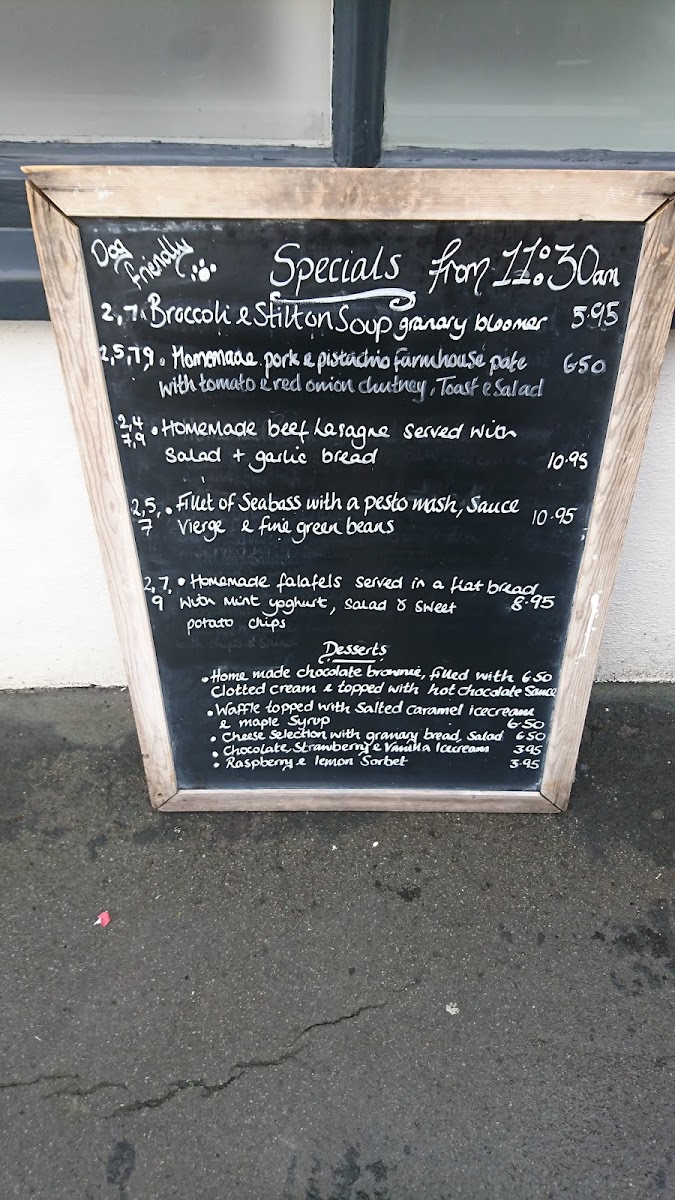 Dog friendly
Specials from 11:30am
2,7. Broccoli e Stilton Soup granary bloomer 5.95
2,5,7,9 • Homemade pork e pistachio farmhouse pate 6.50
with tomato e red onion chutney, Toast e Salad
2,4
7,9 • Homemade beef Lasagne served with
Salad + garlic bread 10.95
2,5,
7 • Fillet of Seabass with a pesto mash, Sauce
Vierge e fine green beans 10.95
2,7,
9 • Homemade falafels served in a flat bread
with Mint yoghurt, Salad & sweet 8.95
potato chips
Desserts
• Home made chocolate brownie, filled with 6.50
Clotted cream e topped with hot chocolate Sauce
• Waffle topped with Salted caramel icecream
e maple Syrup 6.50
• Cheese Selection with granary bread, Salad 6.50
• Chocolate, Strawberry e Vanilla Icecream 3.95
• Raspberry e lemon Sorbet 3.95